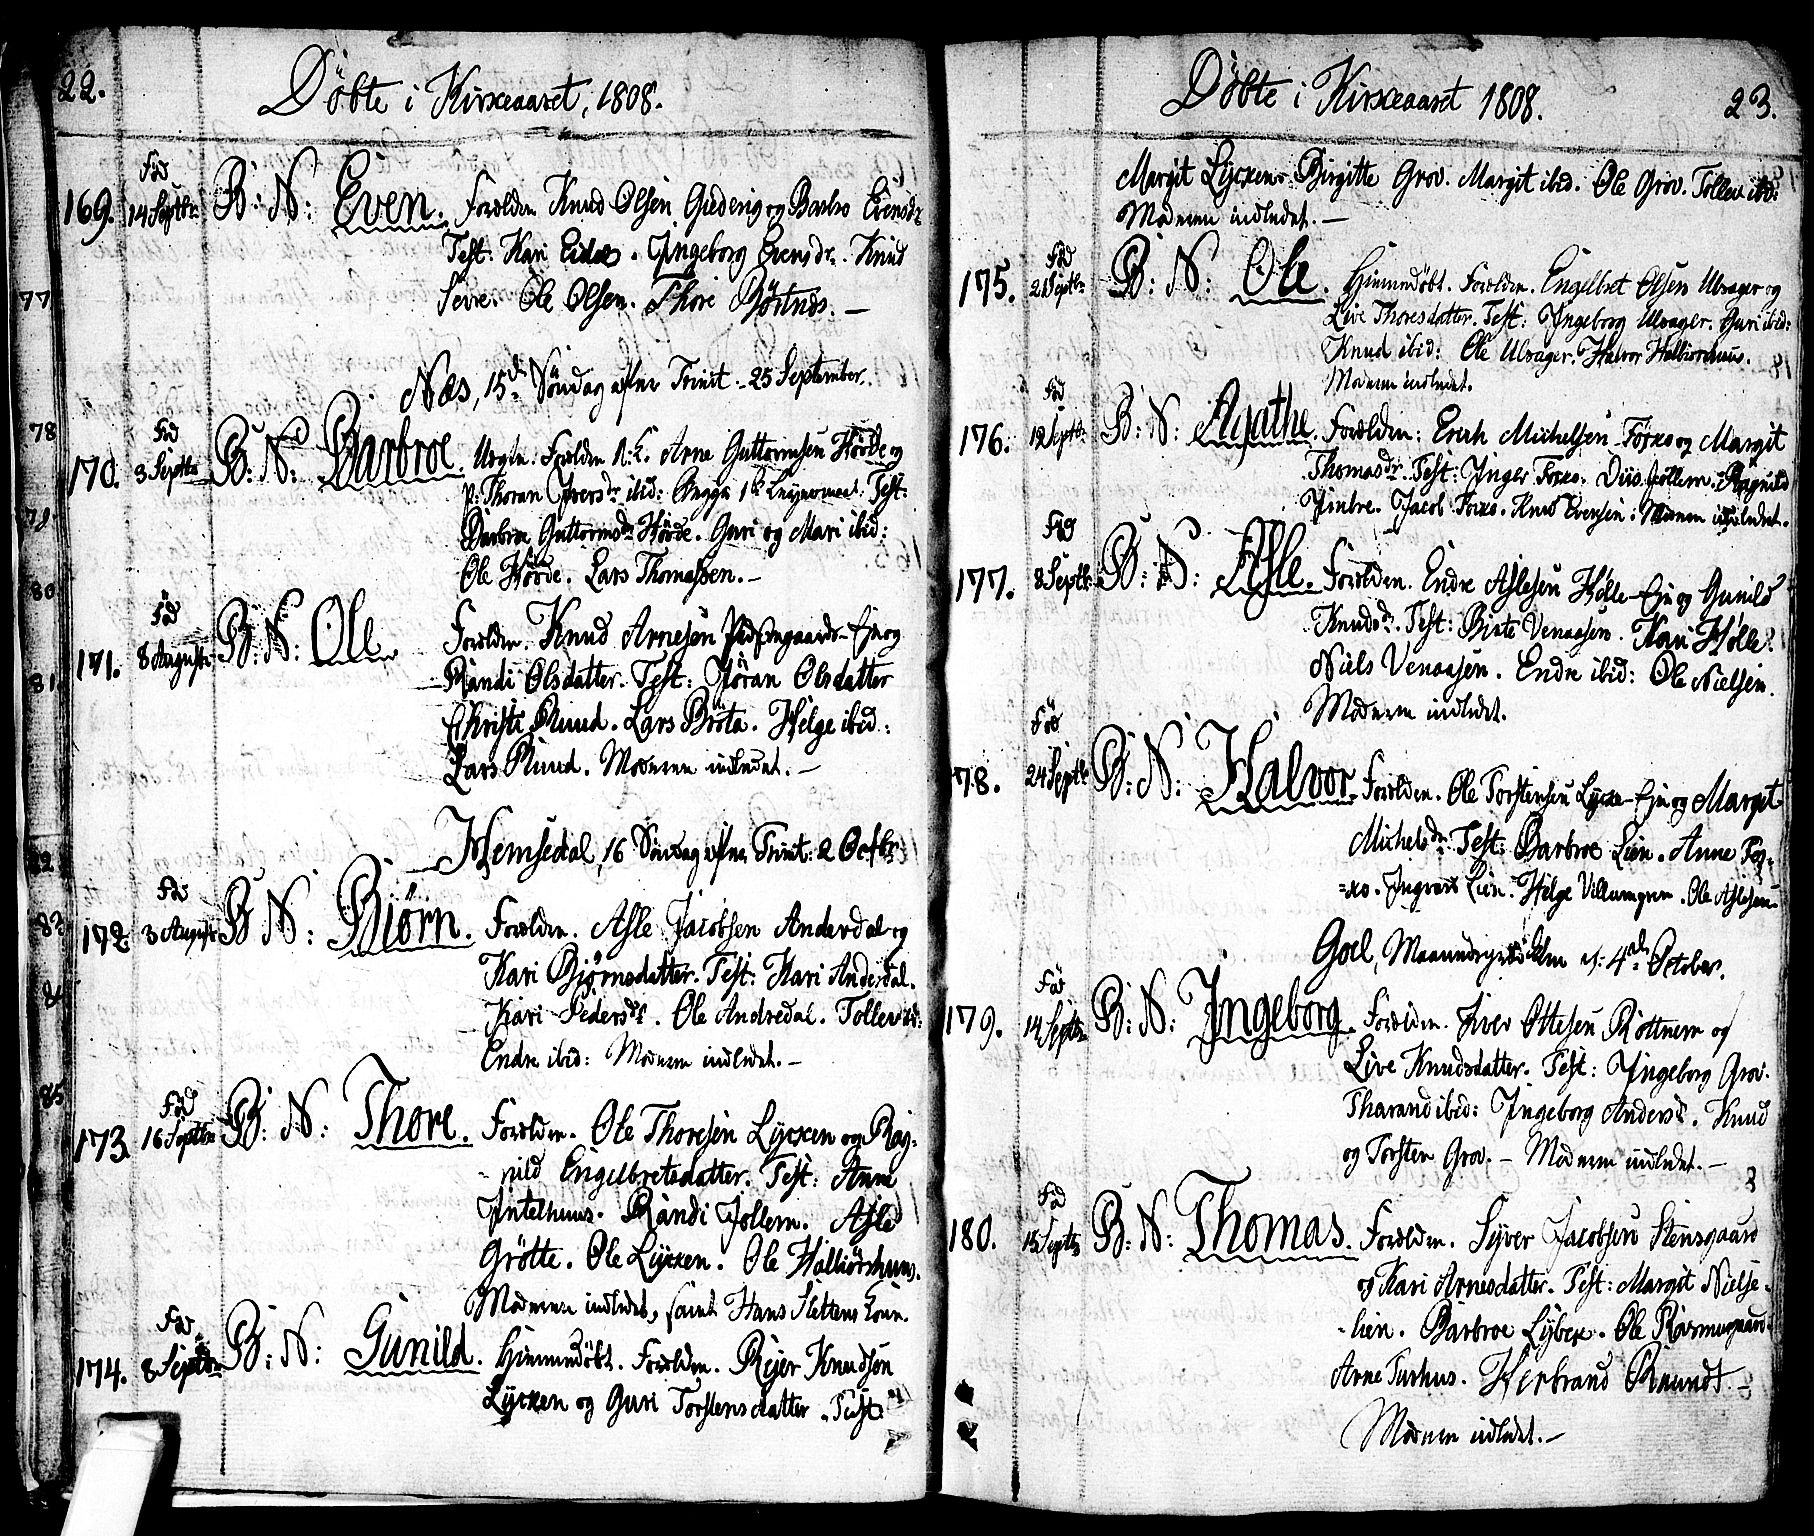 22.
Döbte i Kirkeaaret, 1808.
Fød
169. 14 Septbr. B: N: Even. Forældre Knud Olsen Gudering og Barbro Evensdr
Test: Kari Eidde. Ingeborg Evensdr. Knud
Sevre. Ole Olsen. Thore Börtnæs. —
77
Næs, 15de Söndag efter Trinit: 25 September.
78
Fød
170. 3 Septbr B: N: Barbroe. Uægte. Forældre Arne Guttormsen Hörde og
p: Thoran Iversdr ibid: Begge 1ste Leyermaal. Test:
79
Barbroe Guttormsdr Hörde. Guri og Mari ibid:
Ole Hörde. Lars Thomassen. —
80
Fød
171. 8 August B: N: Ole Forældre. Knud Arnesön Ejer og
81
Randi Olsdatter. Test: Jöran Olsdatter
Christi Ruud. Lars Bröta. Helge ibid:
Lars Ruud. Moderen indledet. —
Hemsedal, 16 Söndag efter Trinit: 2 Octbr
82
Fød
83
172 3 August B: N: Biörn. Forældre. Asle Jacobsen Anderdal og
Kari Björnsdatter. Test: Kari Anderdal.
84
Kari Pedersdr. Ole Andredal. Tollev ibid:
Endre ibid: Moderen indledet. —
85
Fød
173 16 Septbr B: N: Thore. Forældre. Ole Thoresen Lycken og Rag-
nild Engelbretsdatter. Test: Anne
Intelhuus. Randi Jollem. Asle
Grötte. Ole Lycken. Ole Halliörshuus.
Moderen indledet, samt Hans Slettens Kone.
Fød
174. 8 Septbr B: N: Gunild. Hiemmedöbt. Forældre. Reier Knudsön
Lycken og Guri Torstensdatter. Test:
Döbte i Kirkeaaret 1808. 23.
Margit Lycken. Birgitte Grov. Margit ibid. Ole Grov. Tollev ibid:
Moderen indledet. —
Fød
175. 21 Septbr B: N: Ole. Hiemmedöbt. Forældre. Engelbret Olsen Ulsager og
Live Thoresdatter. Test: Ingeborg Ulsager. Guri ibid:
Knud ibid: Ole Ulsager. Halvor Halliorshuus.
Moderen indledet.
Fød
176. 12 Septbr B: N: Agathe. Forældre: Erich Michelsen Torxo og Margit
Thomasdr. Test: Inger Torxo. Jollem. Ragnild
Jacob Torxo. Knud Evensen: Moderen indledet.
Fød
177. 8 Septbr B: N: Asle. Forældre. Endre Aslesen Hölle Ejer og Gunild
Knudsdr. Test: Birte Venaasen. Kari Hölle.
Niels Venaasen. Endre ibid: Ole Nielsen.
Moderen indledet.
Fød
78. 24 Septbr B: N: Halvor. Forældre. Ole Torstensen Lycke Ejer og Margit
Michelsdr Test: Barbroe Lien. Anne Tor-
=xo. Ingvard Lien. Helge Villumgren. Ole Aslesen
Goel, 4de October.
Fød
179. 14 Septbr B: N: Ingeborg. Forældre. Iver Ottesen Rottnem og
Live Knudsdatter. Test: Ingeborg Grov.
Tharand ibid: Ingeborg Andersdr. Knud
og Torsten Grov. — Moderen indledet. —
Fød
180. 15 Septbr B: N: Thomas. Forældre. Syver Jacobsen Stensgaard
og Kari Arnesdatter. Test: Margit Nielse-
-lien. Barbroe Lybeck. Ole Rosmusgaard.
Arne Turhus. Herbrand Ruundt —
Moderen indledet. —